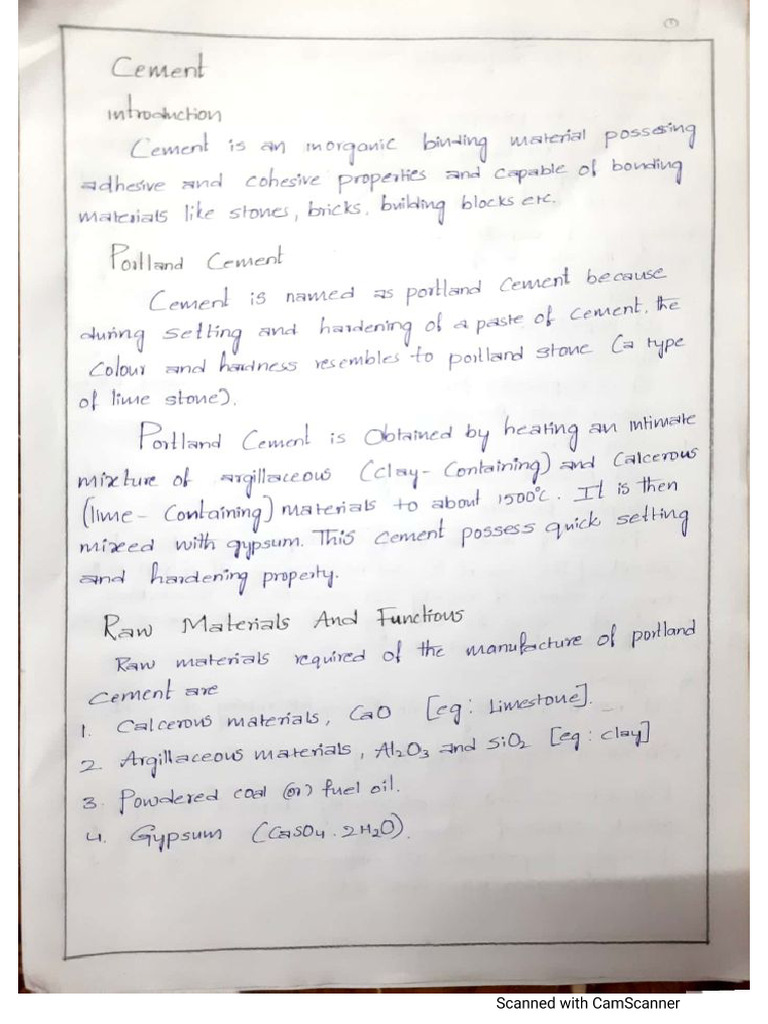 ①
Cement
introduction
Cement is an inorganic binding material possesing
adhesive and cohesive properties and capable of bonding
materials like stones, bricks, building blocks etc.
Portland Cement
Cement is named as portland cement because
during setting and hardening of a paste of cement, the
colour and hardness resembles to portland stone (a type
of lime stone).
Portland Cement is Obtained by heating an intimate
mixture of argillaceous (clay-Containing) and Calcerous
(lime-Containing) materials to about 1500°C. It is then
mixed with gypsum. This cement possess quick setting
and hardening property.
Raw Materials And Functions
Raw materials required of the manufacture of portland
cement are
1. Calcerous materials, CaO [eg: Limestone].
2. Argillaceous materials, Al₂O₃ and SiO₂ [eg: clay]
3. Powdered coal (or) fuel oil.
4. Gypsum (CaSO₄.2H₂O).
Scanned with CamScanner